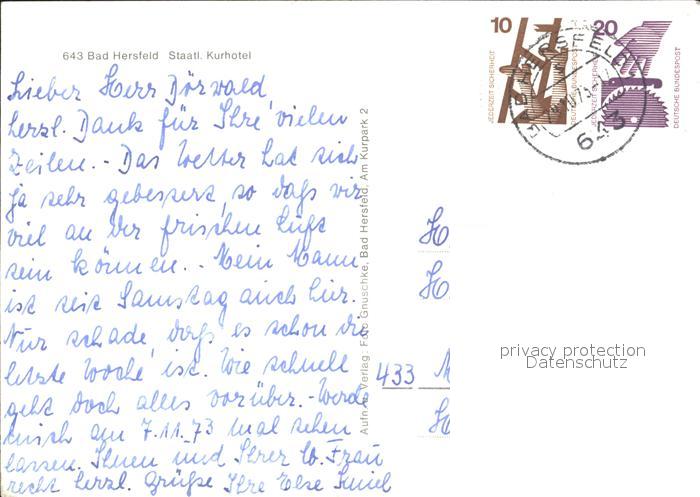 643 Bad Hersfeld Staatl. Kurhotel
Lieber Herr Dörwald
herzl. Dank für Ihre vielen
Zeilen. - Das Wetter hat sich
ja sehr gebessert, so daß wir
viel an der frischen Luft
sein können. - Mein Mann
ist seit Samstag auch hier.
Nur schade, daß es schon die
letzte Woche ist. Wie schnell
geht doch alles vorüber. - Werde
mich am 7.11.73 mal sehen
lassen. Ihnen und Ihrer lb. Frau
recht herzl. Grüße Ihre Else
Aufn. u. Verlag: Foto Gnuschke, Bad Hersfeld, Am Kurpark 2
10
JEDERZEIT SICHERHEIT
DEUTSCHE BUNDESPOST
20
JEDERZEIT SICHERHEIT
DEUTSCHE BUNDESPOST
BAD HERSFELD
643
H
H
433 M
H
privacy protection
Datenschutz